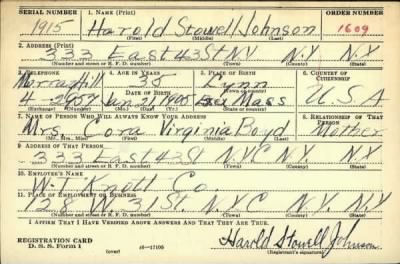 SERIAL NUMBER 1. NAME (Print) ORDER NUMBER
1915 Harold Stowell Johnson 1609
(First) (Middle) (Last)
2. ADDRESS (Print)
333 East 43 St NY N.Y. N.Y
(Number and street or R. F. D. number) (Town) (County) (State)
3. TELEPHONE 4. AGE IN YEARS 5. PLACE OF BIRTH 6. COUNTRY OF CITIZENSHIP
Murray Hill 35 Lynn
DATE OF BIRTH
4 Jan 21 1905 Mass U.S.A
7. NAME OF PERSON WHO WILL ALWAYS KNOW YOUR ADDRESS 8. RELATIONSHIP OF THAT PERSON
Mrs. Cora Virginia Boyd Mother
(Mr., Mrs., Miss) (First) (Middle) (Last)
9. ADDRESS OF THAT PERSON
333 East 43 St NYC NY. NY
(Number and street or R. F. D. number) (Town) (County) (State)
10. EMPLOYER'S NAME
W. T. Knott Co.
11. PLACE OF EMPLOYMENT OR BUSINESS
128 W. 31 St. N.Y.C N.Y. N.Y
(Number and street or R. F. D. number) (Town) (County) (State)
I AFFIRM THAT I HAVE VERIFIED ABOVE ANSWERS AND THAT THEY ARE TRUE.
REGISTRATION CARD
D. S. S. Form 1 (over) 16—17105 Harold Stowell Johnson
(Registrant's signature)